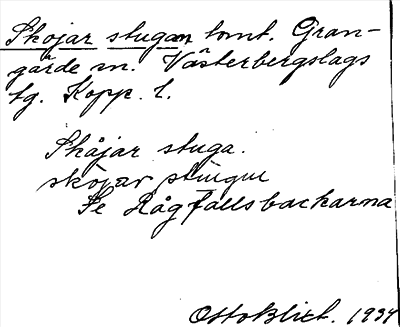 Skojar stugan tomt. Gran-
gärde sn. Västerbergslags
tg. Kopp. l.
Skåjar stuga.
skòjar stùgu
Se Rågfallsbackarna
Otto Blixt. 1934